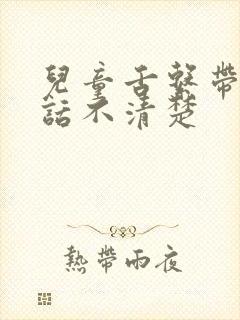 兒童舌繫帶
話不清楚
熱帶雨夜